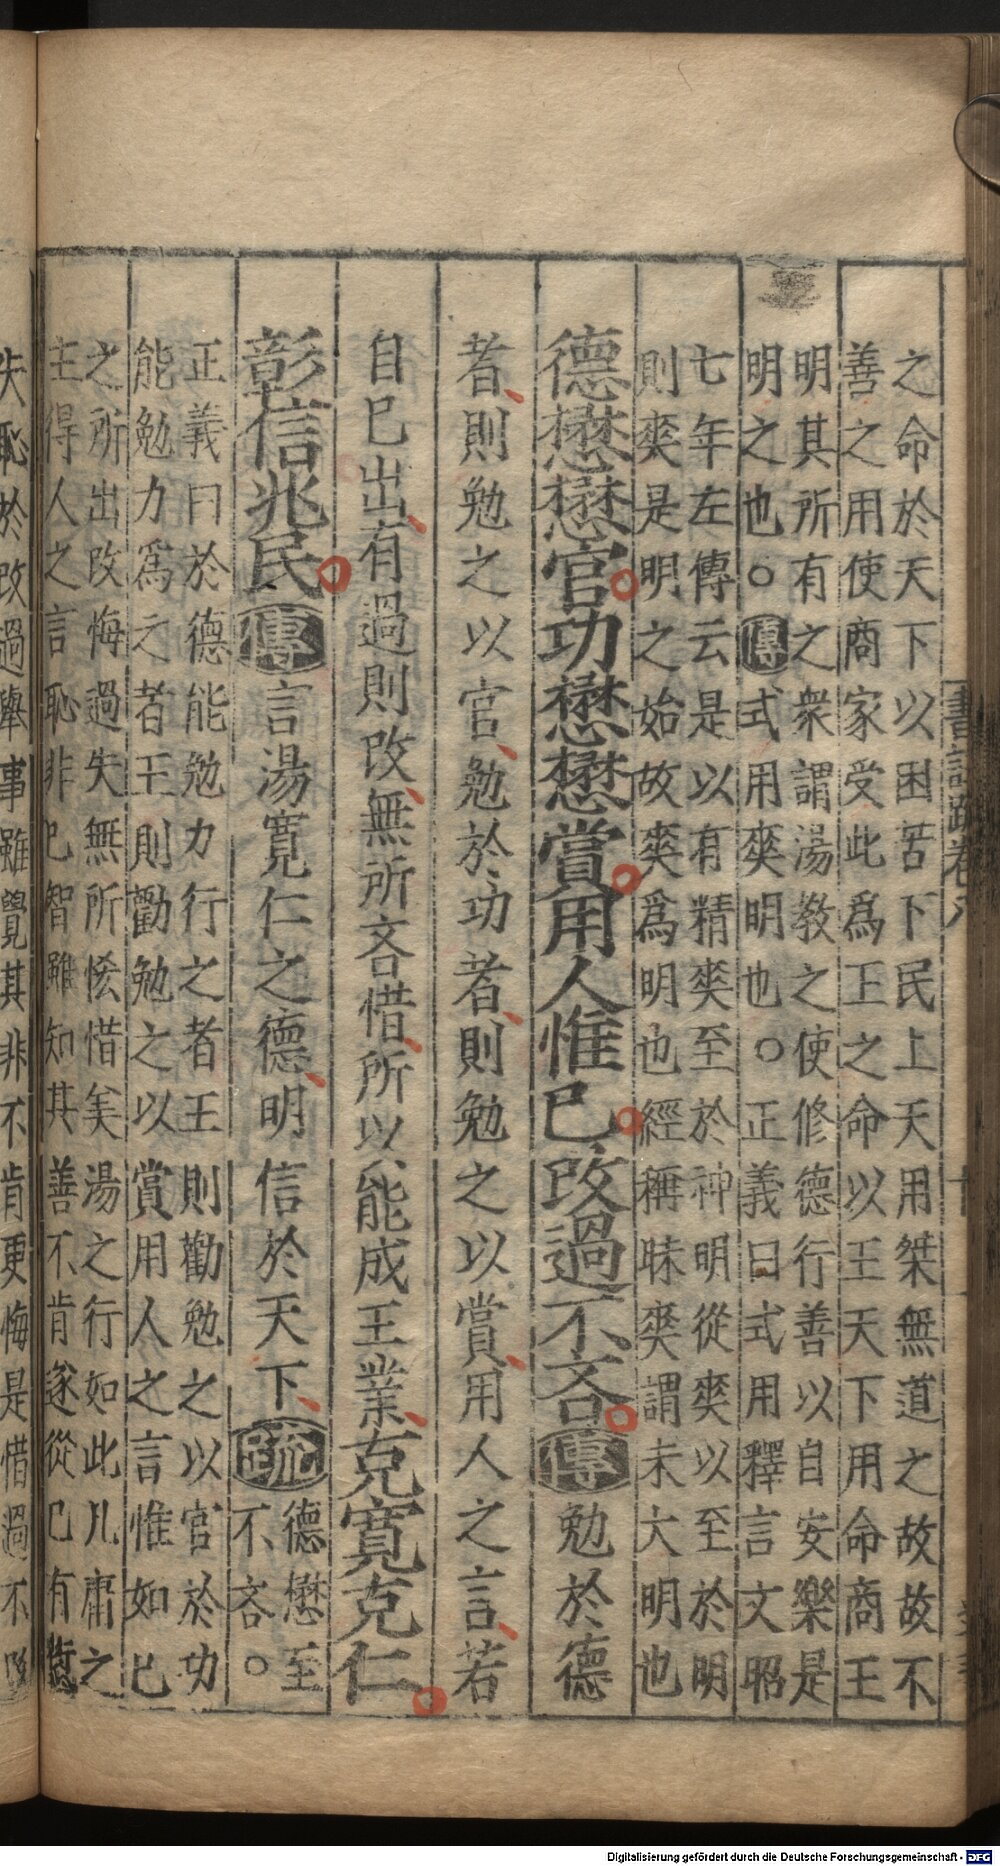 書註疏卷八
之命於天下以困苦下民上天用桀無道之故故不
善之用使商家受此爲王之命以王天下用命商王
明其所有之衆謂湯敎之使修德行善以自安樂是
明之也○傳式用爽明也○正義曰式用釋言文昭
七年左傳云是以有精爽至於神明從爽以至於明
則爽是明之始故爽爲明也經稱昧爽謂未大明也
德懋懋官功懋懋賞用人惟已改過不吝傳勉於德
者則勉之以官勉於功者則勉之以賞用人之言若
自已出有過則改無所吝惜所以能成王業克寬克仁
彰信兆民傳言湯寬仁之德明信於天下疏德懋至
不吝○
正義曰於德能勉力行之者王則勸勉之以官於功
能勉力爲之者王則勸勉之以賞用人之言惟如已
之所出改悔過失無所恡惜美湯之行如此凡庸之
主得人之言恥非已智雖知其善不肯遂從已有愆
失恥於改過舉事雖覺其非不肯更悔是惜過不
Digitalisierung gefördert durch die Deutsche Forschungsgemeinschaft - DFG